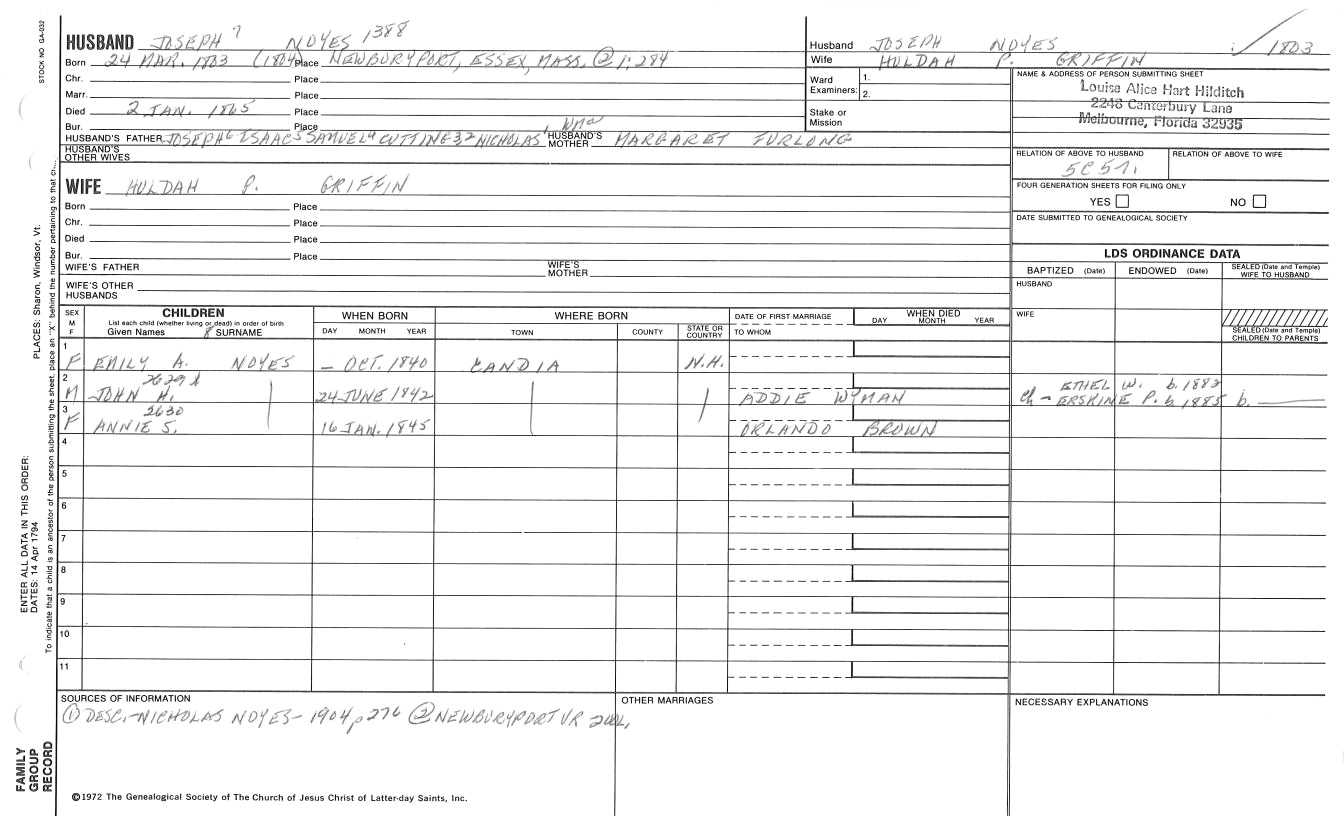 STOCK NO GA-032
HUSBAND JOSEPH 7 NOYES 1388
Born 24 MAR. 1803 (1804) Place NEWBURYPORT, ESSEX, MASS. ② 1:284
Chr. Place
Marr. Place
Died 2 JAN. 1865 Place
Bur. Place
HUSBAND'S FATHER JOSEPH6 ISAAC5 SAMUEL4 CUTTING 3,2 NICHOLAS1 HUSBAND'S MOTHER MARGARET FURLONG
HUSBAND'S OTHER WIVES
WIFE HULDAH P. GRIFFIN
Born Place
Chr. Place
Died Place
Bur. Place
WIFE'S FATHER WIFE'S MOTHER
WIFE'S OTHER HUSBANDS
Husband JOSEPH NOYES 1803
Wife HULDAH P. GRIFFIN
Ward Examiners: 1. 2.
Stake or Mission
NAME & ADDRESS OF PERSON SUBMITTING SHEET
Louise Alice Hart Hilditch
2246 Canterbury Lane
Melbourne, Florida 32935
RELATION OF ABOVE TO HUSBAND RELATION OF ABOVE TO WIFE
5C5r.
FOUR GENERATION SHEETS FOR FILING ONLY
YES NO
DATE SUBMITTED TO GENEALOGICAL SOCIETY
LDS ORDINANCE DATA
BAPTIZED (Date) ENDOWED (Date) SEALED (Date and Temple) WIFE TO HUSBAND
HUSBAND
WIFE
SEALED (Date and Temple) CHILDREN TO PARENTS
SEX M F CHILDREN List each child (whether living or dead) in order of birth Given Names 8 SURNAME
WHEN BORN DAY MONTH YEAR
WHERE BORN TOWN COUNTY STATE OR COUNTRY
DATE OF FIRST MARRIAGE TO WHOM
WHEN DIED DAY MONTH YEAR
1 F EMILY A. NOYES – OCT. 1840 CANDIA N.H.
2 2629 M JOHN H. 24 JUNE 1842 ADDIE WYMAN
ETHEL W. b. 1882
ch – ERSKINE P. b. 1885 b.
3 2630 F ANNIE S. 16 JAN. 1845 ORLANDO BROWN
4
5
6
7
8
9
10
11
SOURCES OF INFORMATION
① DESC.-NICHOLAS NOYES-1904, p276 ② NEWBURYPORT VR
OTHER MARRIAGES
NECESSARY EXPLANATIONS
©1972 The Genealogical Society of The Church of Jesus Christ of Latter-day Saints, Inc.
PLACES: Sharon, Windsor, Vt.
ENTER ALL DATA IN THIS ORDER:
DATES: 14 Apr 1794
To indicate that a child is an ancestor of the person submitting the sheet, place an "X" behind the number pertaining to that
FAMILY GROUP RECORD